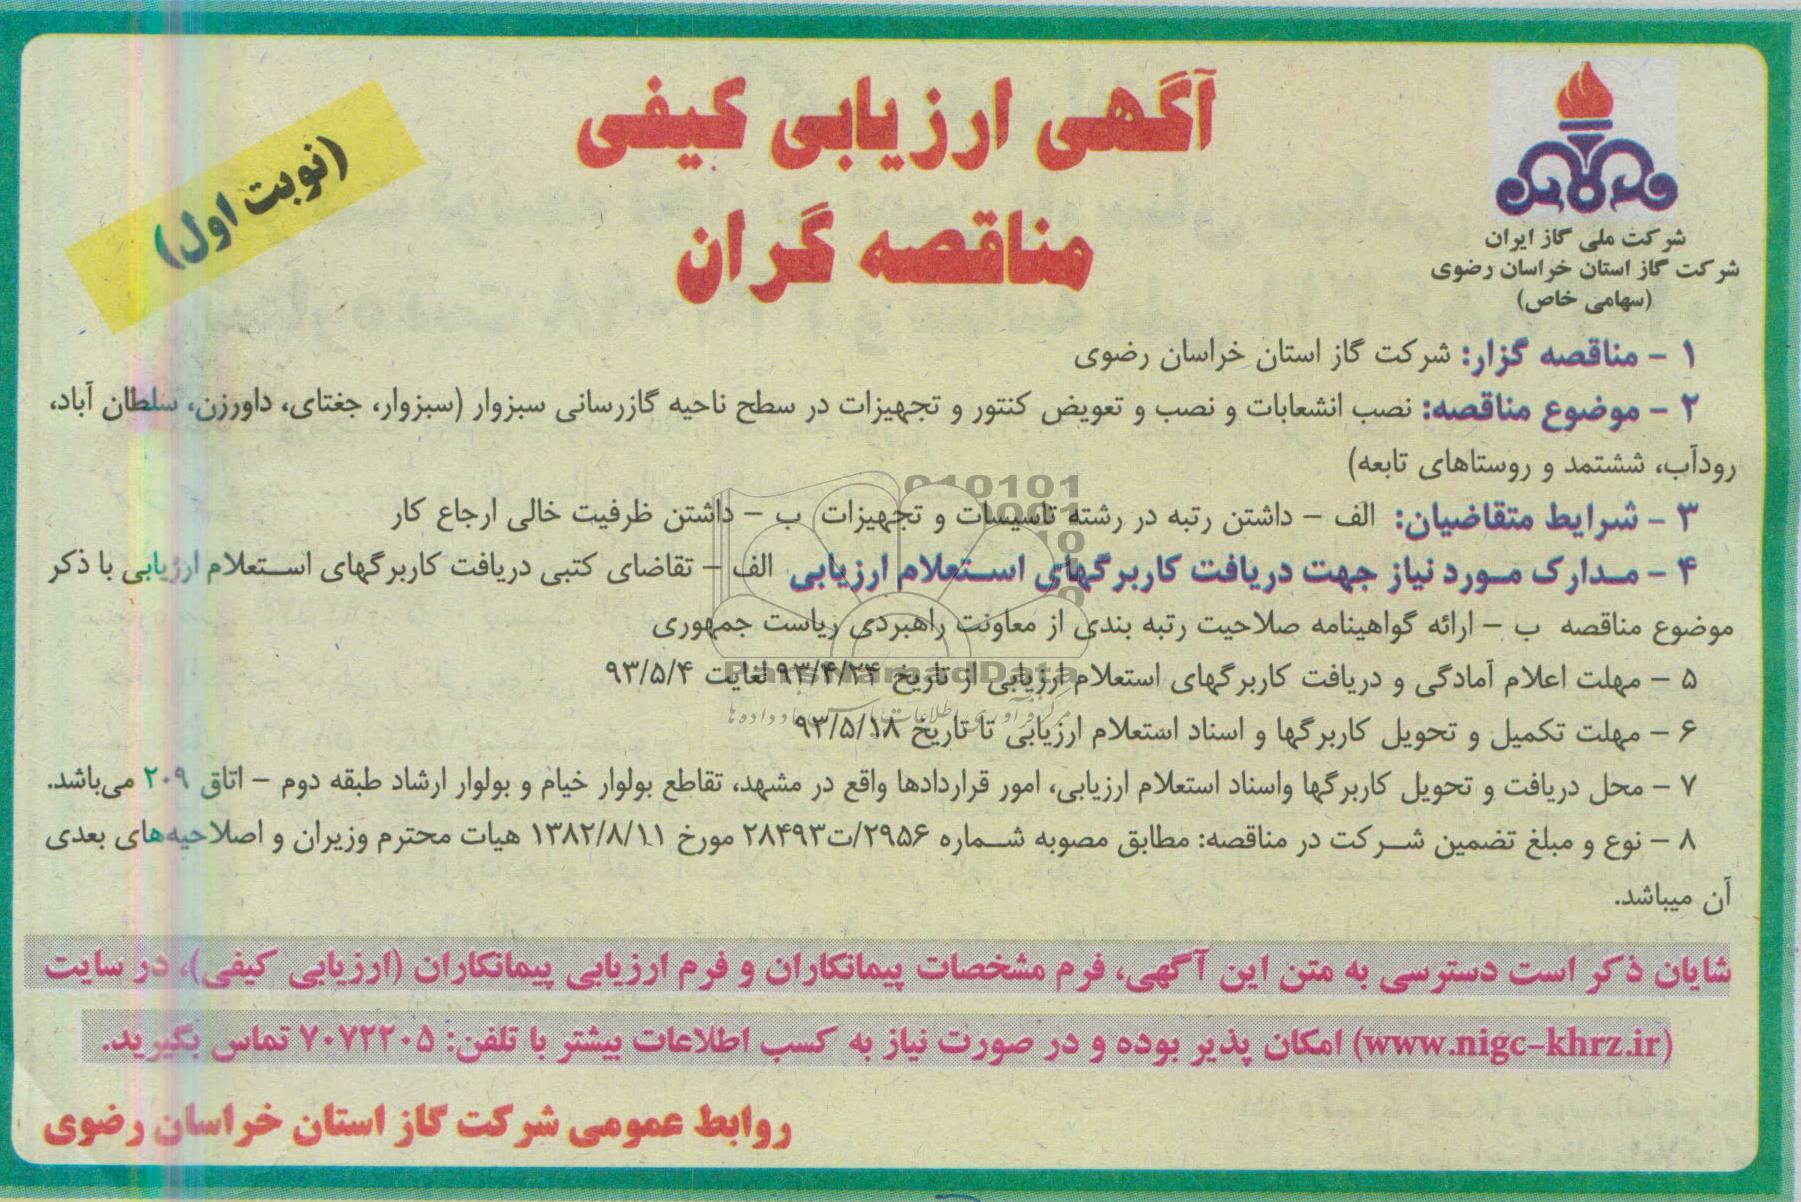 آگهی ارزیابی کیفی
مناقصه گران
(نوبت اول)
شرکت ملی گاز ایران
شرکت گاز استان خراسان رضوی
(سهامی خاص)
۱ - مناقصه گزار: شرکت گاز استان خراسان رضوی
۲ - موضوع مناقصه: نصب انشعابات و نصب و تعویض کنتور و تجهیزات در سطح ناحیه گازرسانی سبزوار (سبزوار، جغتای، داورزن، سلطان آباد،
رودآب، ششتمد و روستاهای تابعه)
۳ - شرایط متقاضیان: الف - داشتن رتبه در رشته تاسیسات و تجهیزات ب - داشتن ظرفیت خالی ارجاع کار
۴ - مدارک مورد نیاز جهت دریافت کاربرگهای استعلام ارزیابی الف - تقاضای کتبی دریافت کاربرگهای استعلام ارزیابی با ذکر
موضوع مناقصه ب - ارائه گواهینامه صلاحیت رتبه بندی از معاونت راهبردی ریاست جمهوری
۵ - مهلت اعلام آمادگی و دریافت کاربرگهای استعلام ارزیابی از تاریخ ۹۳/۴/۲۴ لغایت ۹۳/۵/۴
۶ - مهلت تکمیل و تحویل کاربرگها و اسناد استعلام ارزیابی تا تاریخ ۹۳/۵/۱۸
۷ - محل دریافت و تحویل کاربرگها واسناد استعلام ارزیابی، امور قراردادها واقع در مشهد، تقاطع بولوار خیام و بولوار ارشاد طبقه دوم - اتاق ۲۰۹ می‌باشد.
۸ - نوع و مبلغ تضمین شرکت در مناقصه: مطابق مصوبه شماره ۲۹۵۶/ت۲۸۴۹۳ مورخ ۱۳۸۲/۸/۱۱ هیات محترم وزیران و اصلاحیه‌های بعدی
آن میباشد.
شایان ذکر است دسترسی به متن این آگهی، فرم مشخصات پیمانکاران و فرم ارزیابی پیمانکاران (ارزیابی کیفی)، در سایت
(www.nigc-khrz.ir) امکان پذیر بوده و در صورت نیاز به کسب اطلاعات بیشتر با تلفن: ۷۰۷۲۲۰۵ تماس بگیرید.
روابط عمومی شرکت گاز استان خراسان رضوی
ParsNamadData